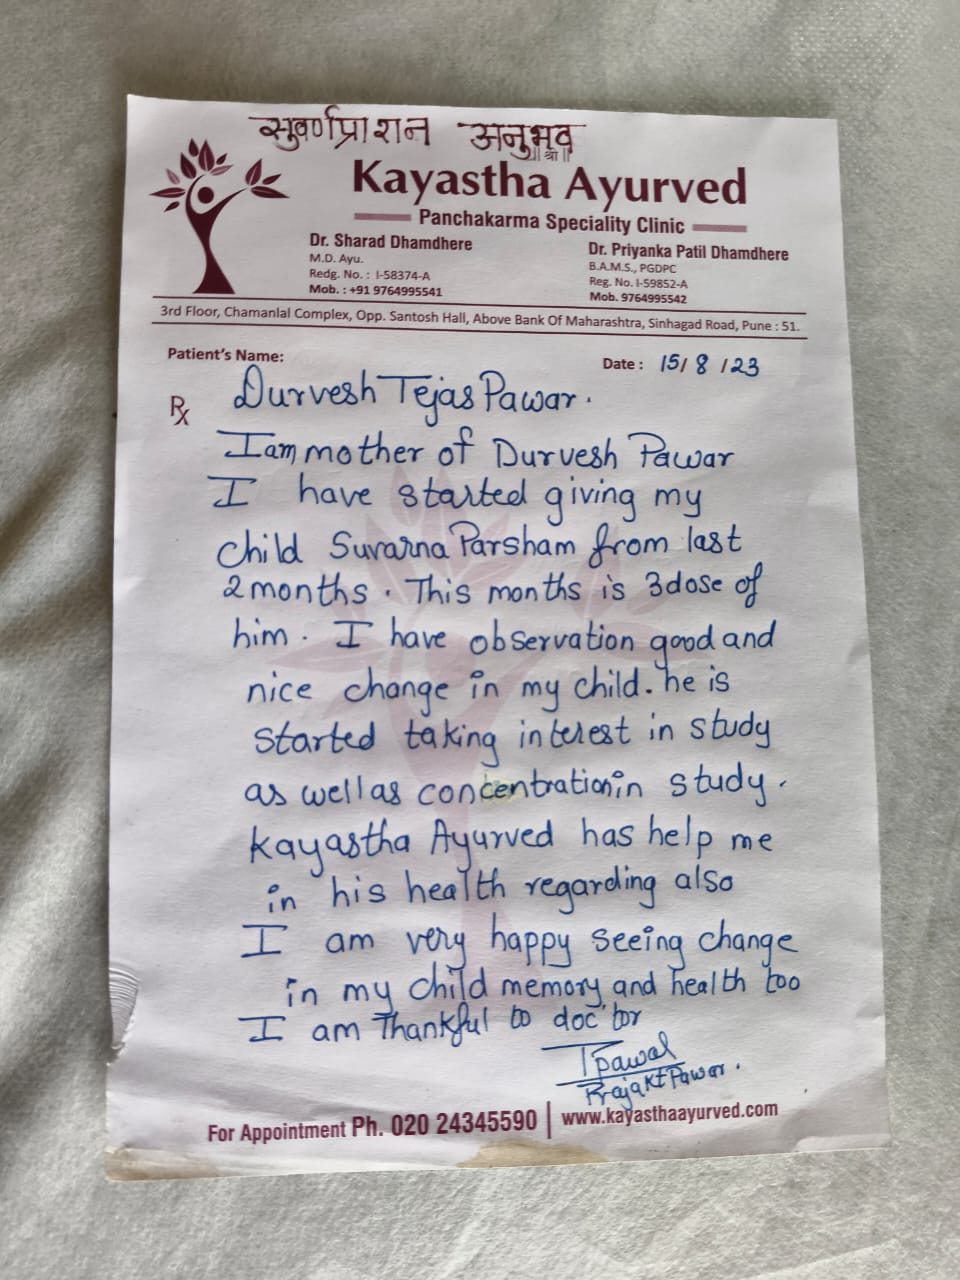 सुवर्णप्राशन अनुभव
॥ श्री ॥
Kayastha Ayurved
Panchakarma Speciality Clinic
Dr. Sharad Dhamdhere
M.D. Ayu.
Redg. No. : I-58374-A
Mob. : +91 9764995541
Dr. Priyanka Patil Dhamdhere
B.A.M.S., PGDPC
Reg. No. I-59852-A
Mob. 9764995542
3rd Floor, Chamanlal Complex, Opp. Santosh Hall, Above Bank Of Maharashtra, Sinhagad Road, Pune : 51.
Patient's Name:
Date : 15/ 8 /23
Rx
Durvesh Tejas Pawar.
I am mother of Durvesh Pawar
I have started giving my
child Suvarna Parsham from last
2 months. This months is 3 dose of
him. I have observation good and
nice change in my child. he is
started taking interest in study
as well as concentration in study.
Kayastha Ayurved has help me
in his health regarding also
I am very happy seeing change
in my child memory and health too
I am Thankful to doctor
Prajakt Pawar.
For Appointment Ph. 020 24345590 | www.kayasthaayurved.com